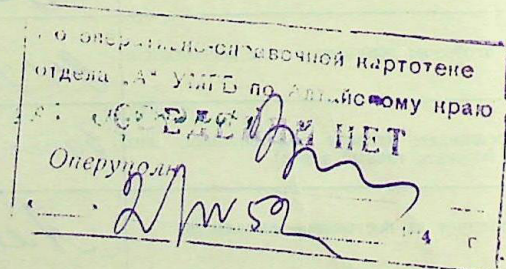 По оперативно-справочной картотеке
отдела „А" УМГБ по Алтайскому краю
СВЕДЕНИЙ НЕТ
Оперуполн
2/IV 52
4 г